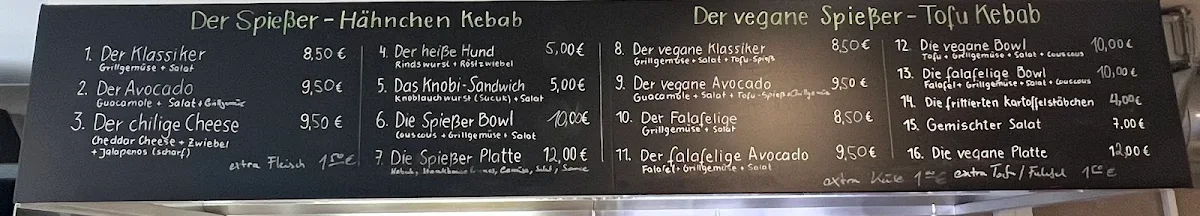 Der Spießer - Hähnchen Kebab
1. Der Klassiker 8,50 €
Grillgemüse + Salat
2. Der Avocado 9,50 €
Guacamole + Salat + Grillgemüse
3. Der chilige Cheese 9,50 €
Cheddar Cheese + Zwiebel
+ Jalapenos (scharf)
extra Fleisch 1,50 €
4. Der heiße Hund 5,00 €
Rindswurst + Röstzwiebel
5. Das Knobi-Sandwich 5,00 €
Knoblauchwurst (Sucuk) + Salat
6. Die Spießer Bowl 10,00 €
Couscous + Grillgemüse + Salat
7. Die Spießer Platte 12,00 €
Kebab, Gemüse, Salat, Sauce
Der vegane Spießer - Tofu Kebab
8. Der vegane Klassiker 8,50 €
Grillgemüse + Salat + Tofu-Spieß
9. Der vegane Avocado 9,50 €
Guacamole + Salat + Tofu-Spieß + Grillgemüse
10. Der Falafelige 8,50 €
Grillgemüse + Salat
11. Der falafelige Avocado 9,50 €
Falafel + Grillgemüse + Salat
extra Käse 1,00 €
12. Die vegane Bowl 10,00 €
Tofu + Grillgemüse + Salat + Couscous
13. Die falafelige Bowl 10,00 €
Falafel + Grillgemüse + Salat + Couscous
14. Die frittierten Kartoffelstäbchen 4,00 €
15. Gemischter Salat 7,00 €
16. Die vegane Platte 12,00 €
extra Tofu / Falafel 1,00 €